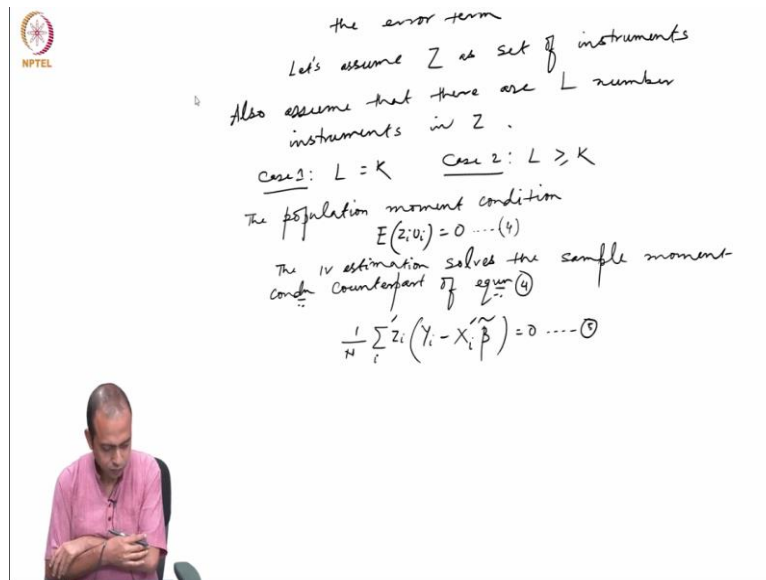 NPTEL
the error term
Let's assume Z as set of instruments
Also assume that there are L number
instruments in Z.
Case 1: L = K Case 2: L ⩾ K
The population moment condition
E(ziυi) = 0 ....(4)
The IV estimation solves the sample moment-
condn counterpart of equn ④
1/N ∑i zi′(Yi - Xi′β̃) = 0 ....⑤